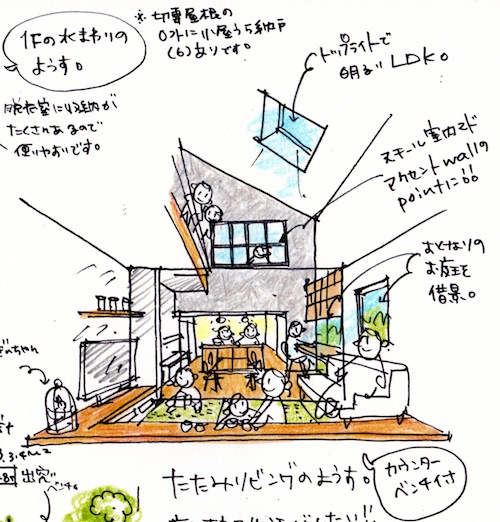 1Fの水まわりの
ようす。
※切妻屋根の
ロフトに小屋うら納戸
(6)ありです。
トップライトで
明るいLDK。
脱衣室に収納が
たくさんあるので
使いやすいです。
スチール室内マド
アクセントwallの
pointに!!
おとなりの
お庭を
借景。
ちゃん
出窓
ベンチ。
たたみリビングのようす。
カウンター
ベンチ付